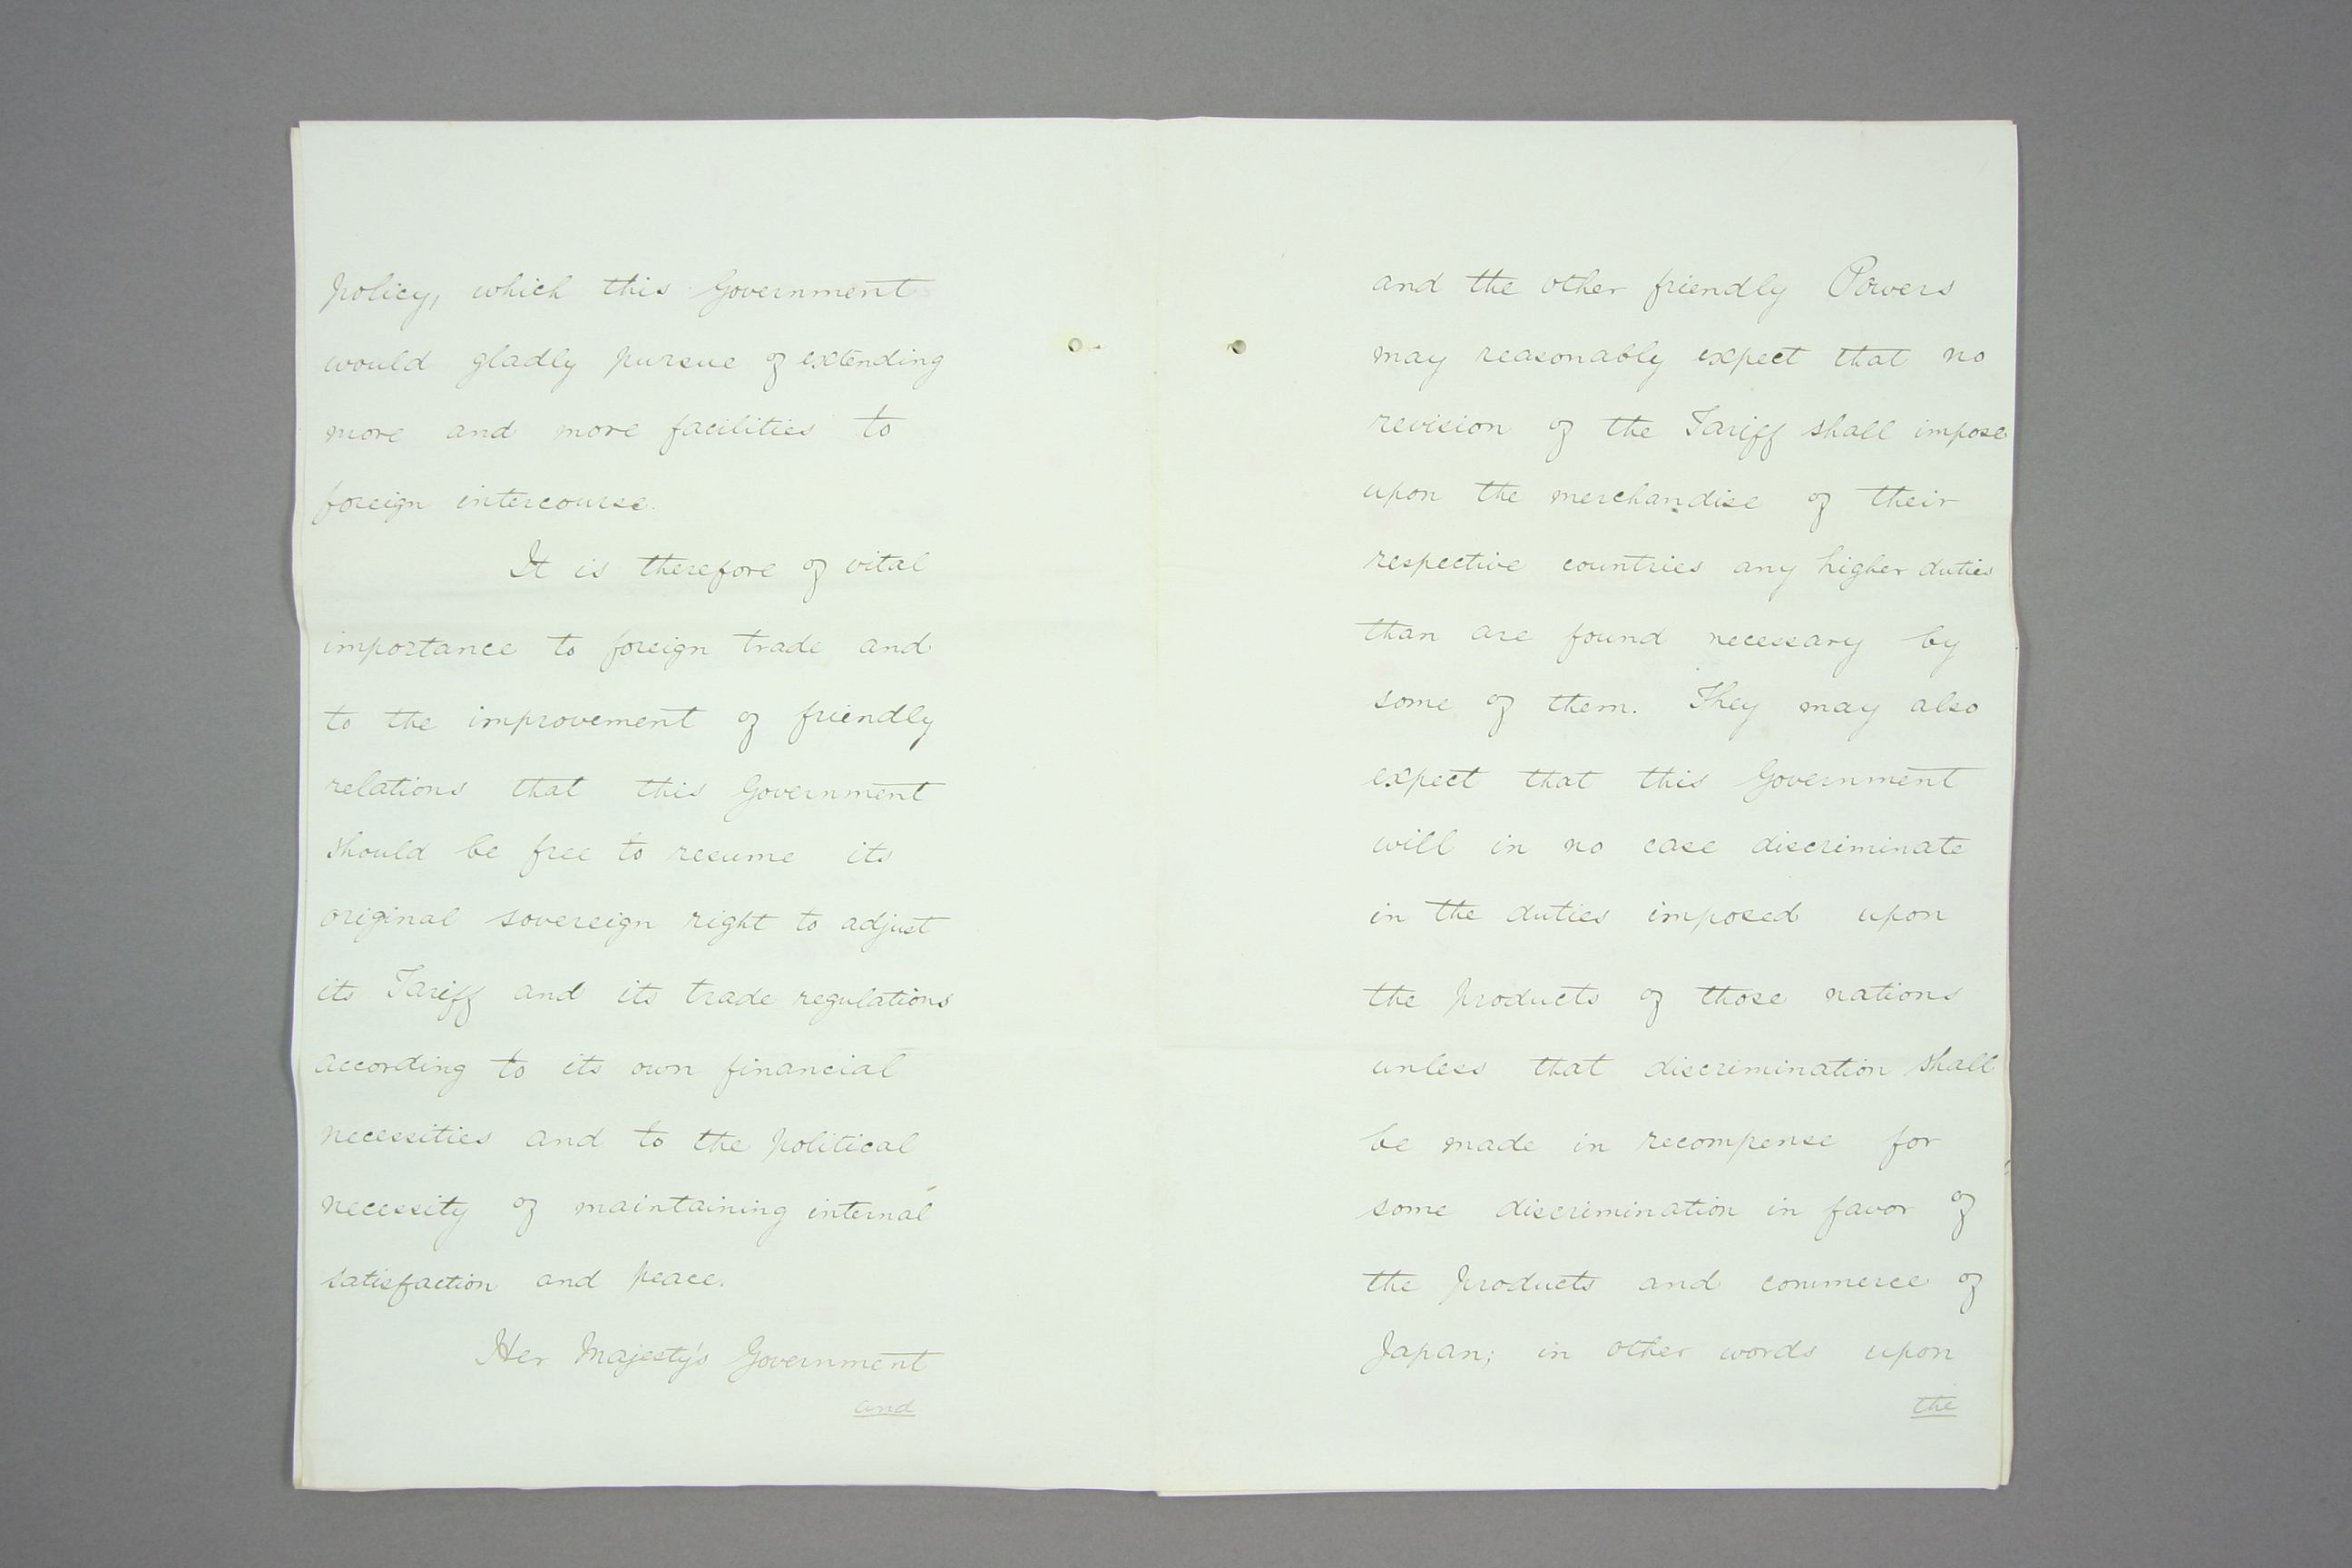 policy, which this Government
would gladly pursue of extending
more and more facilities to
foreign intercourse.
It is therefore of vital
importance to foreign trade and
to the improvement of friendly
relations that this Government
should be free to resume its
original sovereign right to adjust
its Tariff and its trade regulations
according to its own financial
necessities and to the political
necessity of maintaining internal
satisfaction and peace.
Her Majesty's Government
and
and the other friendly Powers
may reasonably expect that no
revision of the Tariff shall impose
upon the merchandise of their
respective countries any higher duties
than are found necessary by
some of them. They may also
expect that this Government
will in no case discriminate
in the duties imposed upon
the products of those nations
unless that discrimination shall
be made in recompense for
some discrimination in favor of
the products and commerce of
Japan; in other words upon
the